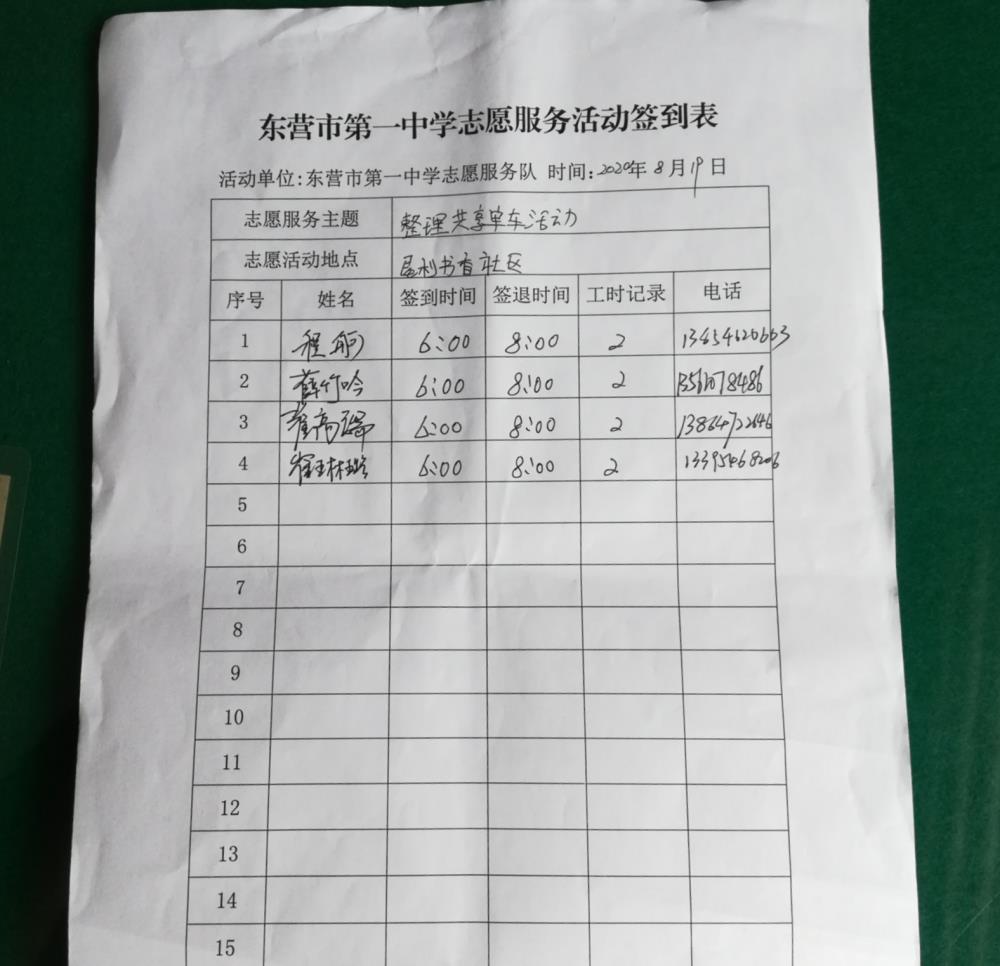 东营市第一中学志愿服务活动签到表
活动单位:东营市第一中学志愿服务队 时间:2020年8月19日
志愿服务主题 整理共享单车活动
志愿活动地点 社区
序号 姓名 签到时间 签退时间 工时记录 电话
1 程 6:00 8:00 2
2 薛竹吟 6:00 8:00 2
3 崔高 6:00 8:00 2
4 崔 6:00 8:00 2
5
6
7
8
9
10
11
12
13
14
15